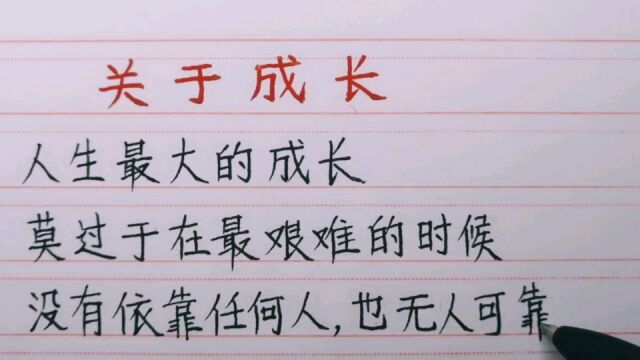 关于成长
人生最大的成长
莫过于在最艰难的时候
没有依靠任何人,也无人可靠